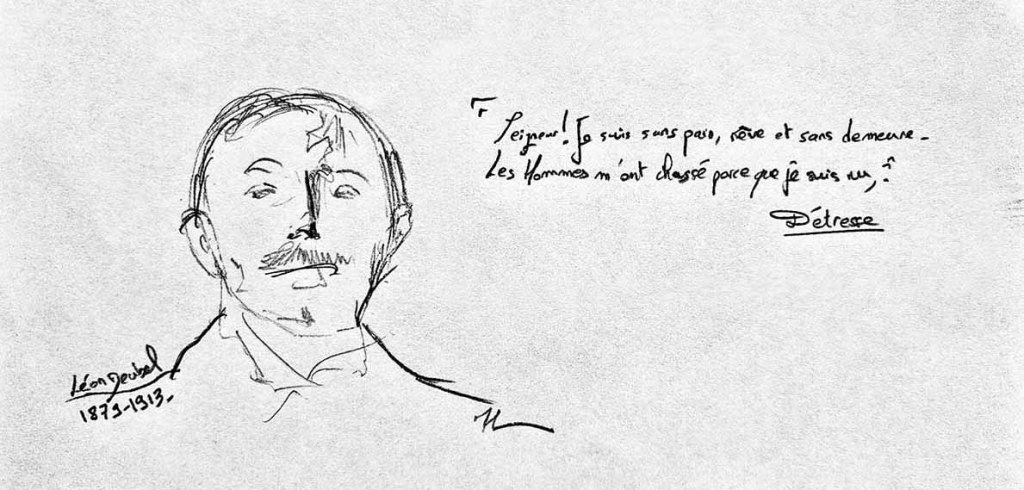 "Seigneur! Je suis sans pain, rêve et sans demeure -
Les Hommes m'ont chassé parce que je suis nu,"
Détresse
Léon Deubel
1879-1913-